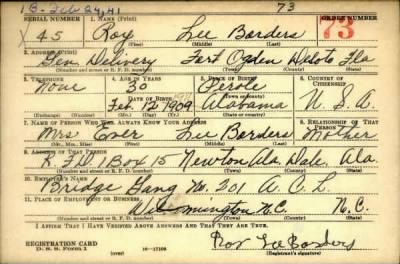 18-Feb 24, 41
73
SERIAL NUMBER 1. NAME (Print) ORDER NUMBER
45 Roy Lee Borders 73
(First) (Middle) (Last)
2. ADDRESS (Print)
Gen Delivery Fort Ogden DeSoto Fla
(Number and street or R. F. D. number) (Town) (County) (State)
3. TELEPHONE 4. AGE IN YEARS 5. PLACE OF BIRTH 6. COUNTRY OF CITIZENSHIP
None 30 Perote
DATE OF BIRTH
Feb. 12 1909 Alabama U. S. A.
(Exchange) (Number) (Mo.) (Day) (Yr.) (State or country)
7. NAME OF PERSON WHO WILL ALWAYS KNOW YOUR ADDRESS 8. RELATIONSHIP OF THAT PERSON
Mrs Ever Lee Borders Mother
(Mr., Mrs., Miss) (First) (Middle) (Last)
9. ADDRESS OF THAT PERSON
R.F.D. 1 Box 15 Newton Ala. Dale, Ala.
(Number and street or R. F. D. number) (Town) (County) (State)
10. EMPLOYER'S NAME
Bridge Gang No. 201 A. C. L.
11. PLACE OF EMPLOYMENT OR BUSINESS
Wilmington N.C. N.C.
(Number and street or R. F. D. number) (Town) (County) (State)
I AFFIRM THAT I HAVE VERIFIED ABOVE ANSWERS AND THAT THEY ARE TRUE.
REGISTRATION CARD
D. S. S. Form 1 (over) 16-17105
Roy Lee Borders
(Registrant's signature)